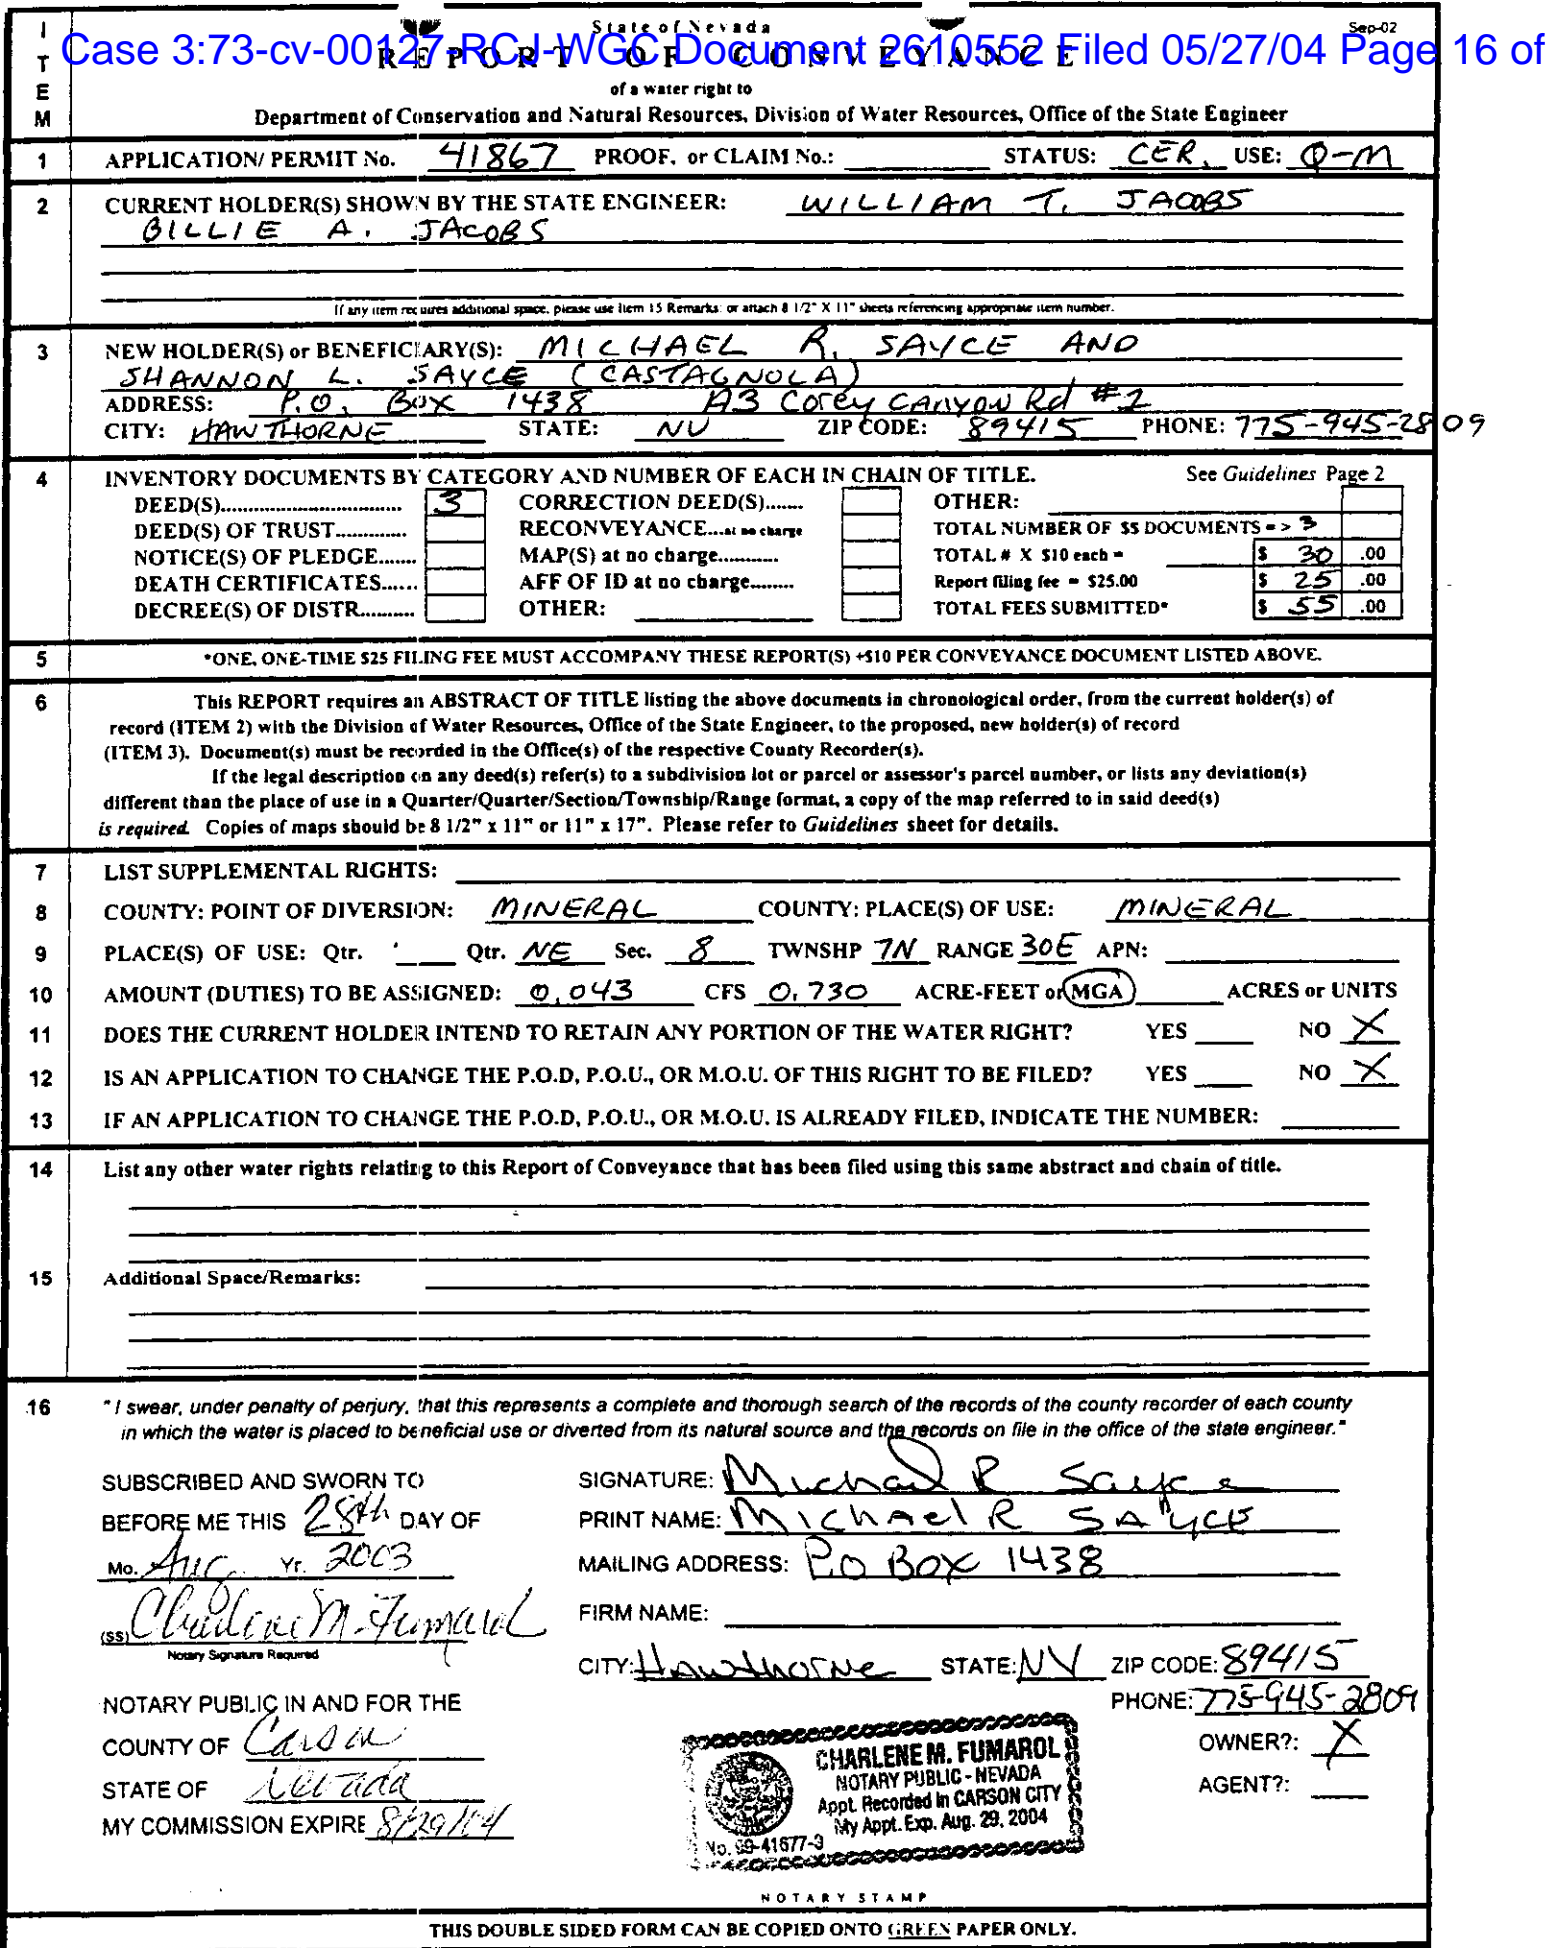 State of Nevada
Sep-02
Case 3:73-cv-00127-RCJ-WGC Document 2610552 Filed 05/27/04 Page 16 of
REPORT OF CONVEYANCE
of a water right to
Department of Conservation and Natural Resources, Division of Water Resources, Office of the State Engineer
ITEM
1 APPLICATION/ PERMIT No. 41867 PROOF, or CLAIM No.: STATUS: CER. USE: Q-M
2 CURRENT HOLDER(S) SHOWN BY THE STATE ENGINEER: WILLIAM T. JACOBS
BILLIE A. JACOBS
If any item requires additional space, please use Item 15 Remarks: or attach 8 1/2" X 11" sheets referencing appropriate item number.
3 NEW HOLDER(S) or BENEFICIARY(S): MICHAEL R. SAYCE AND
SHANNON L. SAYCE (CASTAGNOLA)
ADDRESS: P.O. BOX 1438 A3 Corey CANYON Rd #2
CITY: HAWTHORNE STATE: NV ZIP CODE: 89415 PHONE: 775-945-2809
4 INVENTORY DOCUMENTS BY CATEGORY AND NUMBER OF EACH IN CHAIN OF TITLE. See Guidelines Page 2
DEED(S)................................ 3 CORRECTION DEED(S)....... OTHER:
DEED(S) OF TRUST............. RECONVEYANCE....at no charge TOTAL NUMBER OF $$ DOCUMENTS = > 3
NOTICE(S) OF PLEDGE....... MAP(S) at no charge........... TOTAL # X $10 each = $ 30 .00
DEATH CERTIFICATES...... AFF OF ID at no charge......... Report filing fee = $25.00 $ 25 .00
DECREE(S) OF DISTR........... OTHER: TOTAL FEES SUBMITTED* $ 55 .00
5 *ONE, ONE-TIME $25 FILING FEE MUST ACCOMPANY THESE REPORT(S) +$10 PER CONVEYANCE DOCUMENT LISTED ABOVE.
6 This REPORT requires an ABSTRACT OF TITLE listing the above documents in chronological order, from the current holder(s) of
record (ITEM 2) with the Division of Water Resources, Office of the State Engineer, to the proposed, new holder(s) of record
(ITEM 3). Document(s) must be recorded in the Office(s) of the respective County Recorder(s).
If the legal description on any deed(s) refer(s) to a subdivision lot or parcel or assessor's parcel number, or lists any deviation(s)
different than the place of use in a Quarter/Quarter/Section/Township/Range format, a copy of the map referred to in said deed(s)
is required. Copies of maps should be 8 1/2" x 11" or 11" x 17". Please refer to Guidelines sheet for details.
7 LIST SUPPLEMENTAL RIGHTS:
8 COUNTY: POINT OF DIVERSION: MINERAL COUNTY: PLACE(S) OF USE: MINERAL
9 PLACE(S) OF USE: Qtr. Qtr. NE Sec. 8 TWNSHP 7N RANGE 30E APN:
10 AMOUNT (DUTIES) TO BE ASSIGNED: 0.043 CFS 0.730 ACRE-FEET or MGA ACRES or UNITS
11 DOES THE CURRENT HOLDER INTEND TO RETAIN ANY PORTION OF THE WATER RIGHT? YES NO X
12 IS AN APPLICATION TO CHANGE THE P.O.D, P.O.U., OR M.O.U. OF THIS RIGHT TO BE FILED? YES NO X
13 IF AN APPLICATION TO CHANGE THE P.O.D, P.O.U., OR M.O.U. IS ALREADY FILED, INDICATE THE NUMBER:
14 List any other water rights relating to this Report of Conveyance that has been filed using this same abstract and chain of title.
15 Additional Space/Remarks:
16 "I swear, under penalty of perjury, that this represents a complete and thorough search of the records of the county recorder of each county
in which the water is placed to beneficial use or diverted from its natural source and the records on file in the office of the state engineer."
SUBSCRIBED AND SWORN TO SIGNATURE: Michael R Sayce
BEFORE ME THIS 28th DAY OF PRINT NAME: Michael R SAYCE
Mo. Aug. Yr. 2003 MAILING ADDRESS: P.O BOX 1438
(SS) Charlene M. Fumarol FIRM NAME:
Notary Signature Required
CITY: Hawthorne STATE: NV ZIP CODE: 89415
NOTARY PUBLIC IN AND FOR THE PHONE: 775-945-2809
COUNTY OF Carson OWNER?: X
STATE OF Nevada AGENT?:
MY COMMISSION EXPIRE 8/29/04
CHARLENE M. FUMAROL
NOTARY PUBLIC - NEVADA
Appt. Recorded in CARSON CITY
My Appt. Exp. Aug. 29, 2004
No. 99-41677-3
NOTARY STAMP
THIS DOUBLE SIDED FORM CAN BE COPIED ONTO GREEN PAPER ONLY.